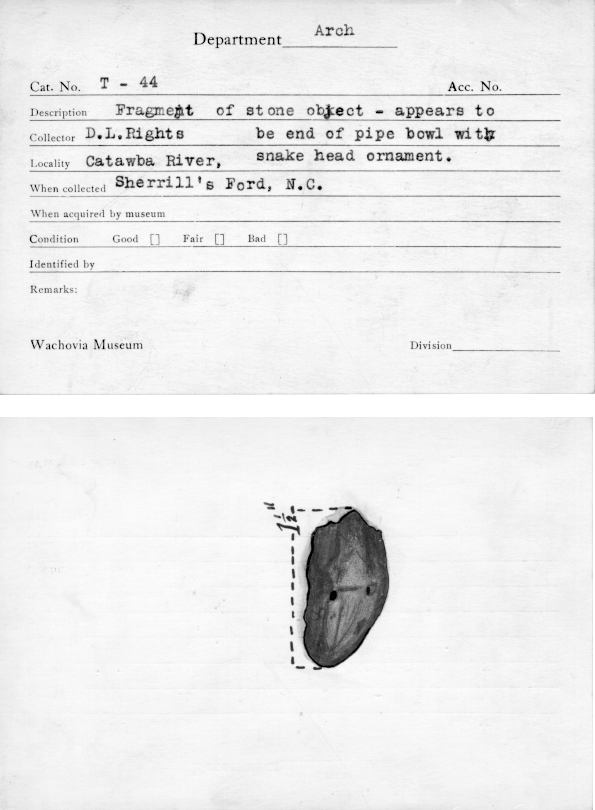 Department Arch
Cat. No. T - 44 Acc. No.
Description Fragment of stone object - appears to
Collector D.L.Rights be end of pipe bowl with
Locality Catawba River, snake head ornament.
When collected Sherrill's Ford, N.C.
When acquired by museum
Condition Good [] Fair [] Bad []
Identified by
Remarks:
Wachovia Museum Division
1½"